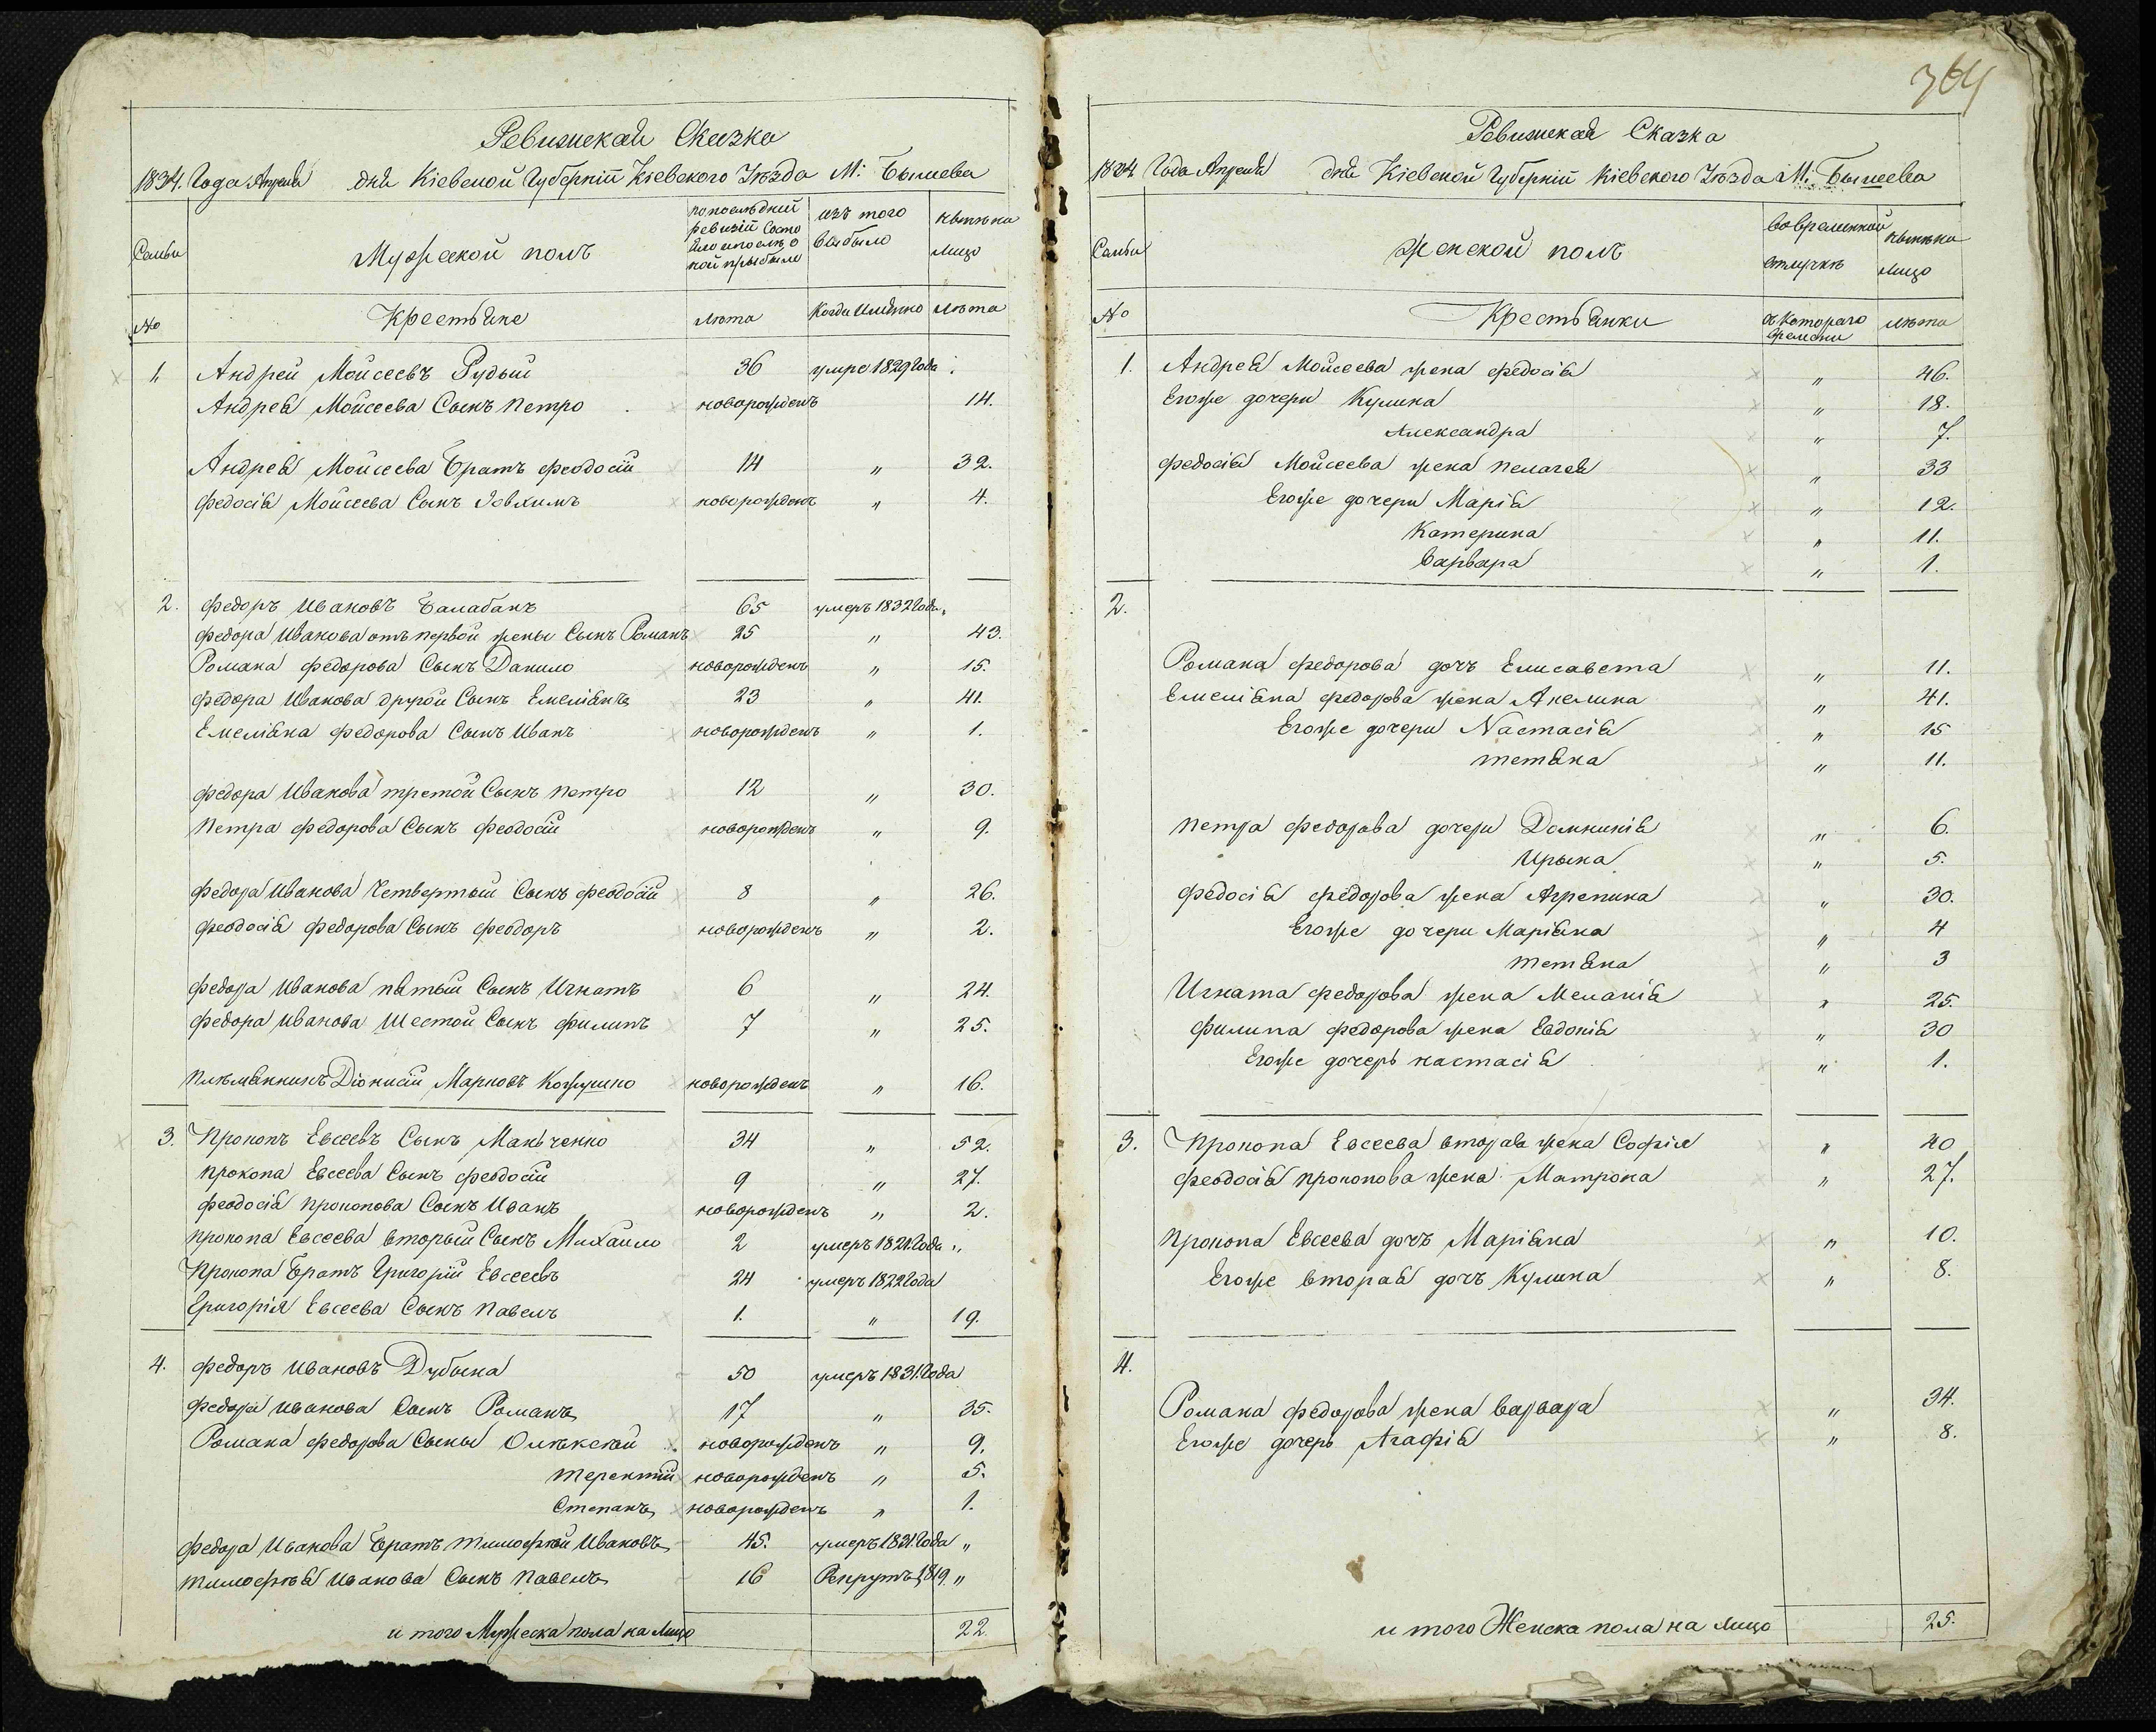 Ревизиская Сказка
1834. Года Апреля дня Кіевской Губерніи Кіевского Уезда М: Бышева
Семьи
Мужеской полъ
по последней ревизіи состо яло и после о ной прыбыло
изъ того выбыло
ныне на лицо
№
Крестьяне
лета
Когда имянно
лета
1. Андрей Мойсеевъ Рудый 36 умре 1829 Года
Андрея Мойсеева Сынъ Петро новорожденъ 14.
Андрея Мойсеева Братъ Феодосій 14 " 32.
Федосія Мойсеева Сынъ Іовхимъ новорожденъ " 4.
2. Федоръ Ивановъ Балабанъ 65 умеръ 1832 Года "
Федора Иванова отъ первой жены Сынъ Романъ 25 " 43.
Романа Федорова Сынъ Данило новорожденъ " 15.
Федора Иванова другой Сынъ Емеліянъ 23 " 41.
Емеліяна Федорова Сынъ Иванъ новорожденъ " 1.
Федора Иванова третой Сынъ Петро 12 " 30.
Петра Федорова Сынъ Феодосій новорожденъ " 9.
Федора Иванова Четвертый Сынъ Феодосій 8 " 26.
Феодосія Федорова Сынъ Феодоръ новорожденъ " 2.
Федора Иванова пятый Сынъ Игнатъ 6 " 24.
Федора Иванова Шестой Сынъ Филипъ 7 " 25.
Племянникъ Діонисій Марковъ Кожушко новорожденъ " 16.
3. Прокопъ Евсеевъ Сынъ Манченко 34 " 52.
Прокопа Евсеева Сынъ Феодосій 9 " 27.
Феодосія Прокопова Сынъ Иванъ новорожденъ " 2.
Прокопа Евсеева вторый Сынъ Михаило 2 умеръ 1821. Года "
Прокопа Братъ Григорій Евсеевъ 24 умеръ 1822 Года
Григорія Евсеева Сынъ Павелъ 1. " 19.
4. Федоръ Ивановъ Дубына 50 умеръ 1831. Года
Федора Иванова Сынъ Романъ 17 " 35.
Романа Федорова Сыны Олексей новорожденъ " 9.
Терентій новорожденъ " 5.
Степанъ новорожденъ " 1.
Федора Иванова Братъ Тимофей Ивановъ 45. умеръ 1831. Года "
Тимофея Иванова Сынъ Павелъ 16 Рекрутъ 1819. "
и того Мужеска пола на Лицо 22.
364
Ревизиская Сказка
1834 Года Апреля дня Кіевской Губерніи Кіевского Уезда М. Бышева
Семьи
Женской полъ
Вовременной отлучке
ныне на лицо
№
Крестьянки
съ Которого времени
лета
1. Андрея Мойсеева жена Федосія " 46.
Егоже дочери Кулина " 18.
Александра " 7.
Федосія Мойсеева жена Пелагея " 33
Егоже дочери Марія " 12.
Катерина " 11.
Варвара " 1.
2.
Романа Федорова дочъ Елисавета " 11.
Емеліяна Федорова жена Акелина " 41.
Егоже дочери Настасія " 15
Тетяна " 11.
Петра Федорова дочери Домникія " 6.
Ирына " 5.
Федосія Федорова жена Агрепина " 30.
Егоже дочери Маріяна " 4
Тетяна " 3
Игната Федорова жена Меланія " 25.
Филипа Федорова жена Евдокія " 30
Егоже дочерь Настасія " 1.
3. Прокопа Евсеева вторая жена Софія " 40
Феодосія Прокопова жена Матрона " 27.
Прокопа Евсеева дочъ Маріяна " 10.
Егоже вторая дочъ Кулина " 8.
4.
Романа Федорова жена Варвара " 34.
Егоже дочерь Агафія " 8.
и того Женска пола на Лицо 25.